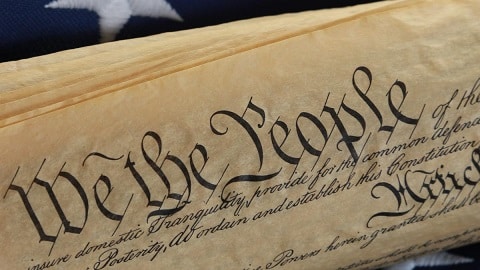 We the People of the
insure domestic Tranquility, provide for the common defence
Posterity, do ordain and establish this Constitution
Article
Powers herein granted shall be